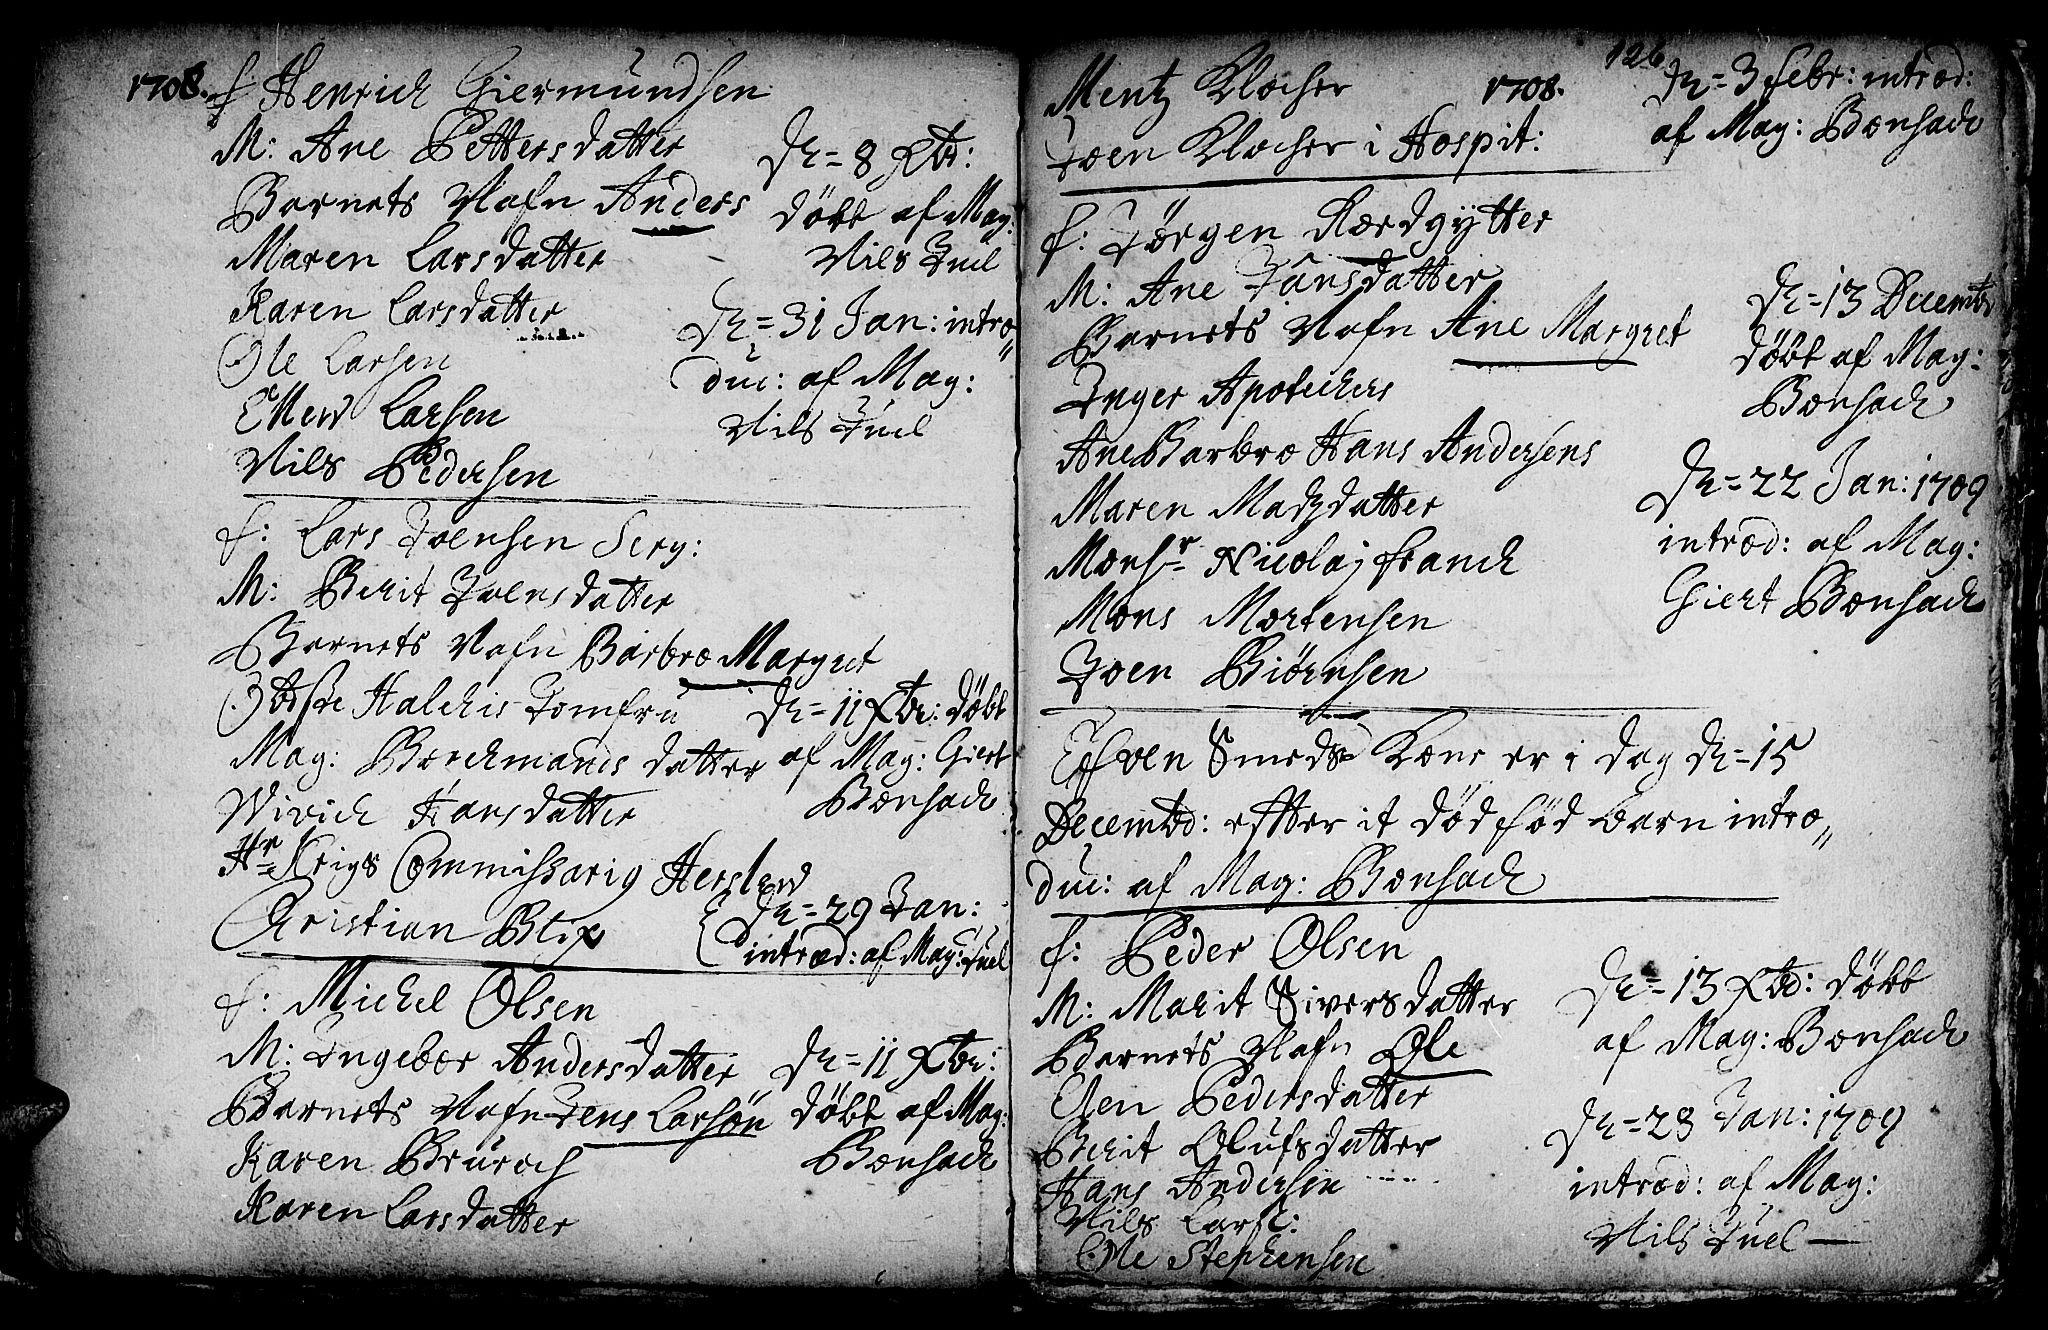 1708.
f: Henrich Giermundsen
M: Ane Pettersdatter
Barnets Nafn Anders
Maren Larsdatter
Karen Larsdatter
Ole Larsen
Ellew Larsen
Nils Pedersen
D. = 8 Xbr:
døbt af Mag:
Nils Juel
D. = 31 Jan: intro„
duc: af Mag:
Nils Juel
f: Lars Joensen Serg:
M: Berit Joensdatter
Barnets Nafn Barbro Margret
Obste Halchis Jomfru
Mag: Borchmands datter
Wivich Hansdatter
Hr Krigs Commissarig Herslew
Christian Blix
D. = 11 Xbr: døbt
af Mag: Giert
Bonsach
D. = 29 Jan:
introd: af Mag: Juel
f: Michel Olsen
M: Ingebor Andersdatter
Barnets Nafn Jens Larsøn
Karen Bruroch
Karen Larsdatter
D. = 11 Xbr:
døbt af Mag:
Bonsach
126
1708.
Mentz Klocher
Joen Klocher i Hospit:
D. = 3 febr: introd:
af Mag: Bonsach
f: Jørgen Rordgytter
M: Ane Jansdatter
Barnets Nafn Ane Margret
Inger Apotechers
Ane Barbro Hans Andersens
Maren Madzdatter
Monsr Nicolaj franch
Mons Mortensen
Joen Biørnsen
D. = 13 Decembr
døbt af Mag:
Bonsach
D. = 22 Jan: 1709
introd: af Mag:
Giert Bonsach
Efven Smeds Kone er i dag d. = 15
Decembr: effter it død fød barn intro„
duc: af Mag: Bonsach
f: Peder Olsen
M: Marit Siversdatter
Barnets Nafn Ole
Elen Pedersdatter
Berit Olufsdatter
Hans Andersen
Nils Lars:
Ole Stephensen
D. = 13 Xbr: døbt
af Mag: Bonsach
D. = 28 Jan: 1709
introd: af Mag:
Nils Juel